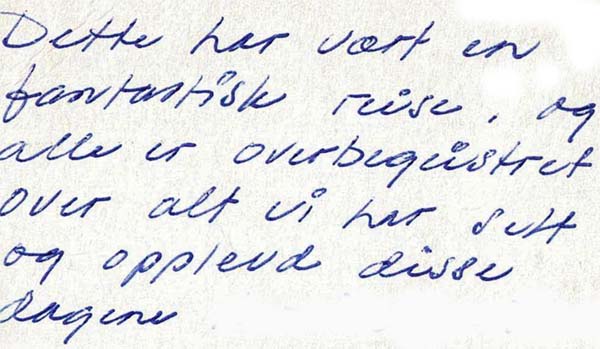 Dette har vært en
fantastisk reise, og
alle er overbegeistret
over alt vi har sett
og opplevd disse
dagene